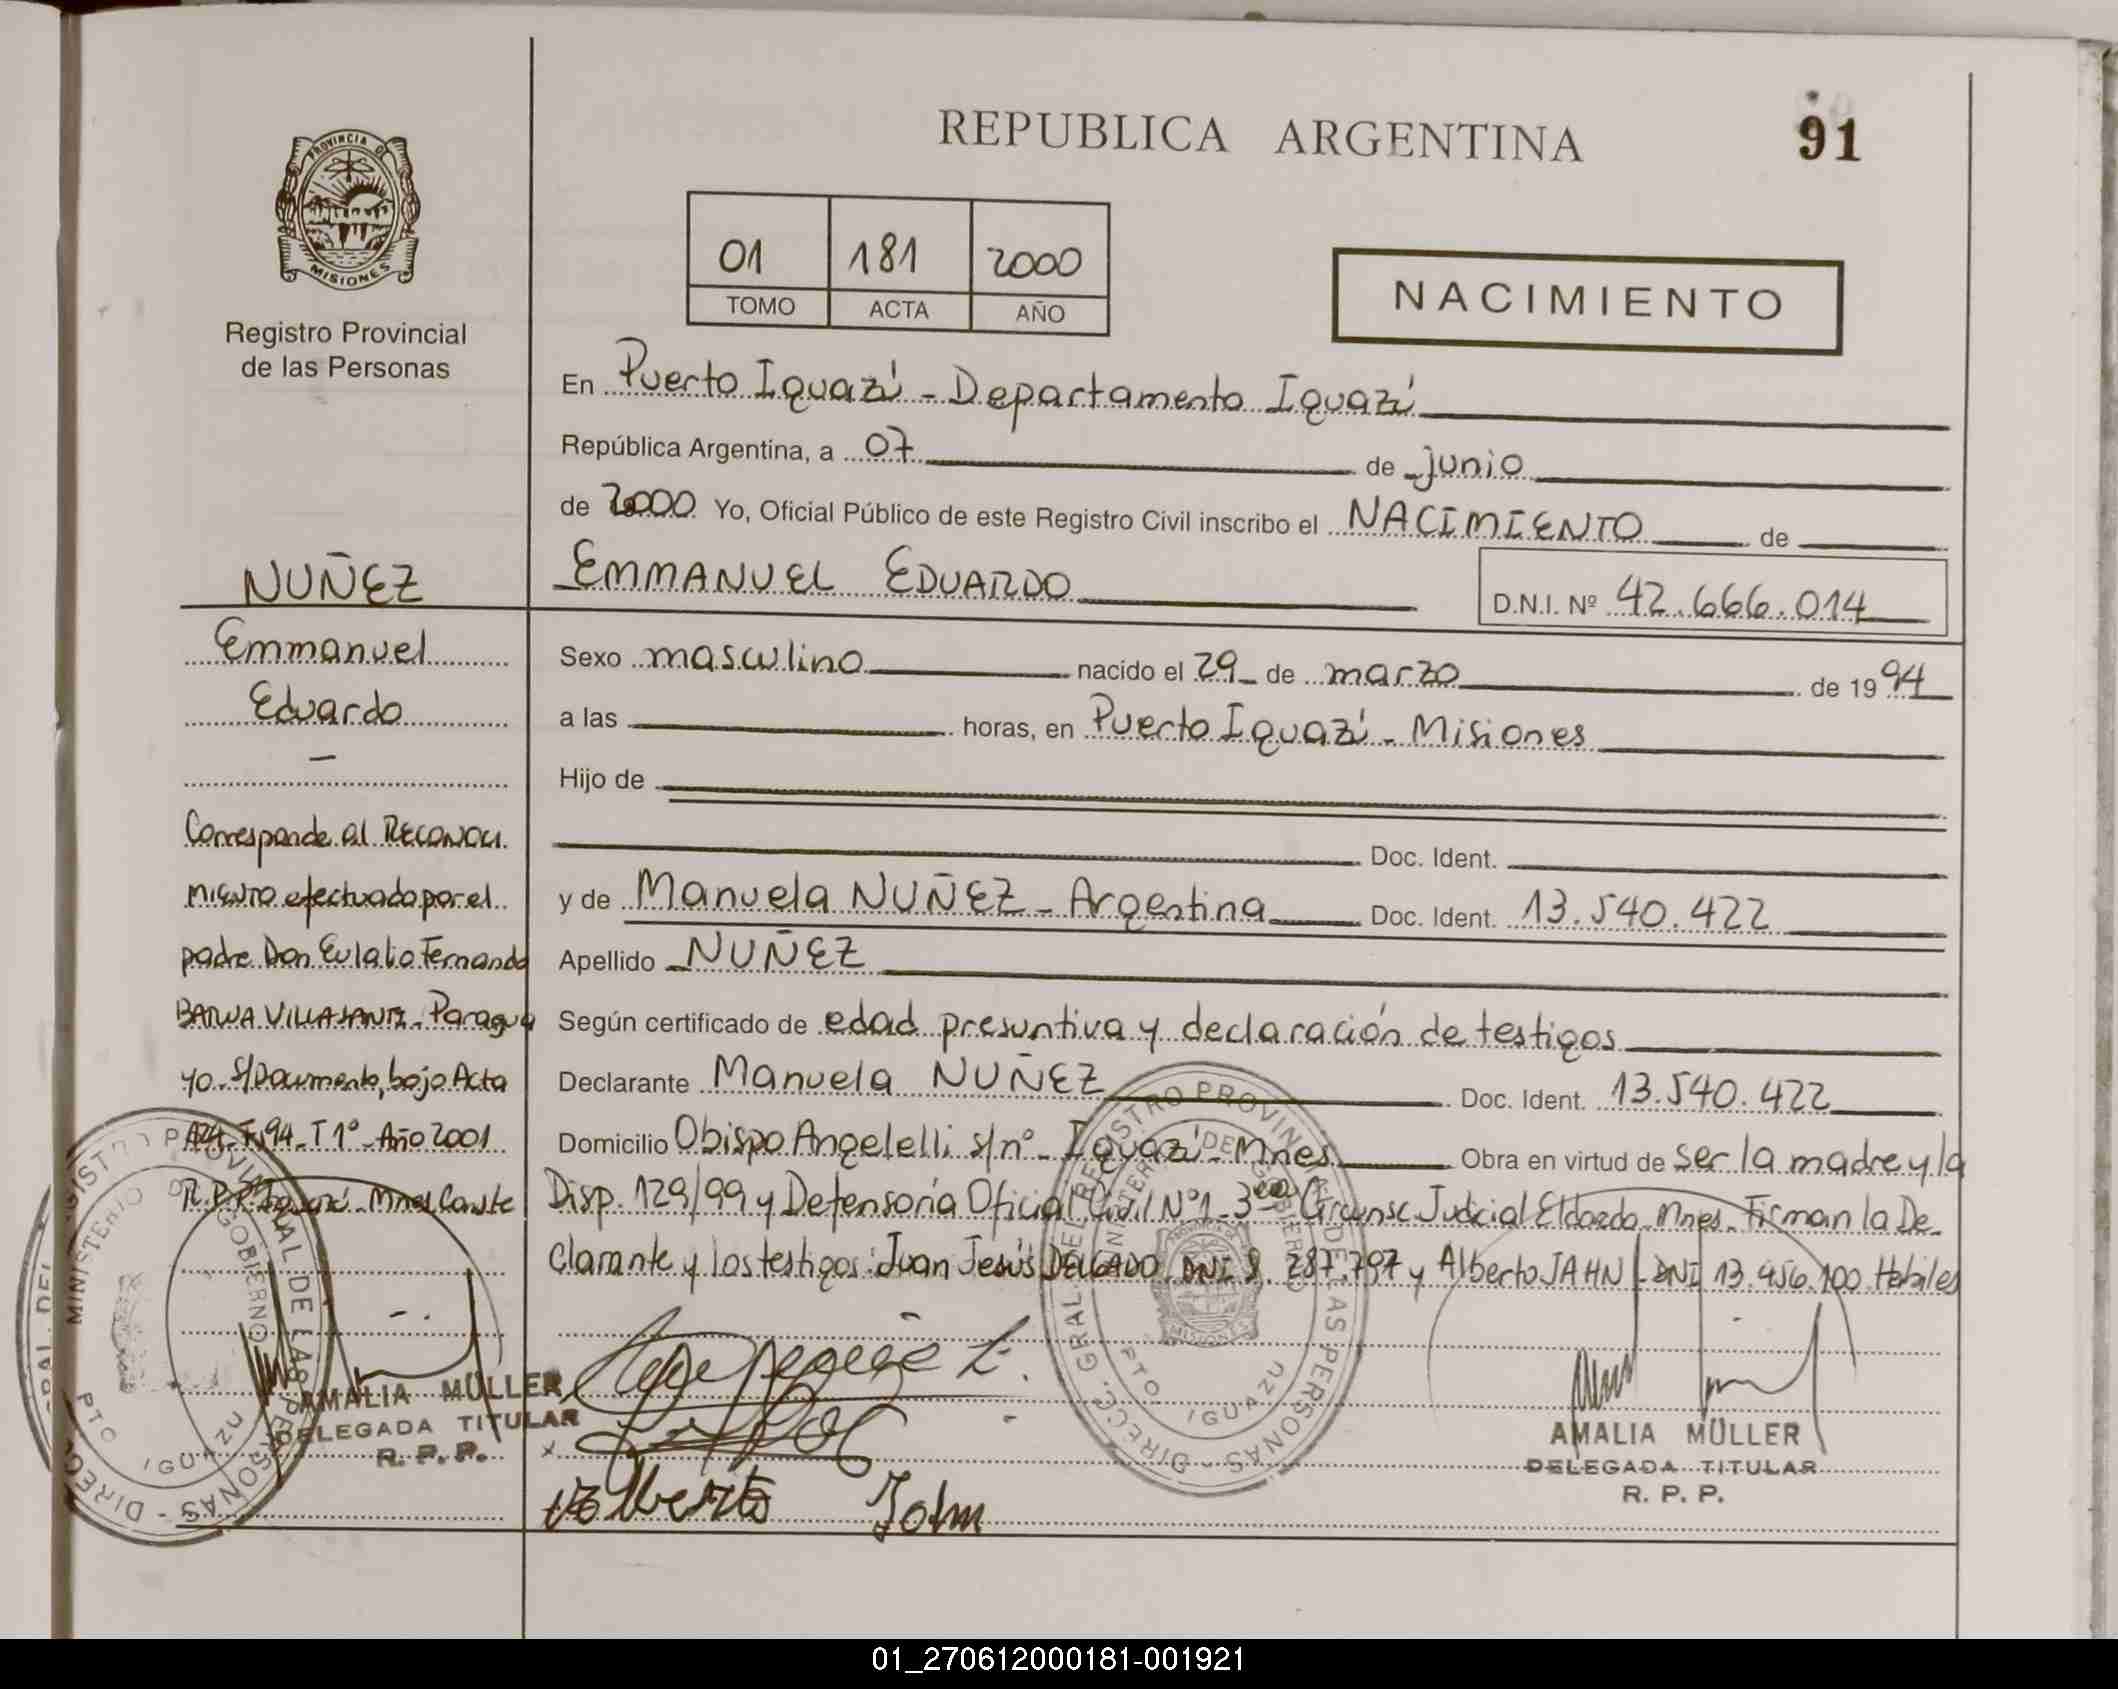 REPUBLICA ARGENTINA
91
PROVINCIA DE
MISIONES
Registro Provincial
de las Personas
01 181 2000
TOMO ACTA AÑO
NACIMIENTO
En Puerto Iguazú - Departamento Iguazú
República Argentina, a 07 de junio
de 2000 Yo, Oficial Público de este Registro Civil inscribo el NACIMIENTO de
EMMANUEL EDUARDO
D.N.I. Nº 42.666.014
Sexo masculino nacido el 29 de marzo de 1994
a las horas, en Puerto Iguazú - Misiones
Hijo de
Doc. Ident.
y de Manuela NUÑEZ - Argentina Doc. Ident. 13.540.422
Apellido NUÑEZ
Según certificado de edad presuntiva y declaración de testigos
Declarante Manuela NUÑEZ Doc. Ident. 13.540.422
Domicilio Obispo Angelelli s/nº - Iguazú - Mnes Obra en virtud de ser la madre y la
Disp. 129/99 y Defensoría Oficial Civil Nº 1 - 3era Circunsc Judicial Eldorado - Mnes - Firman la De-
clarante y los testigos: Juan Jesús DELGADO DNI 8.287.797 y Alberto JAHN - DNI 13.456.100 Hábiles
NUÑEZ
Emmanuel
Eduardo
-
Corresponde al RECONOCI
MIENTO efectuado por el
padre Don Eulalio Fernando
VILLASANTE - Paragua
yo - S/Documento, bajo Acta
A24 - F.94 - T 1º - Año 2001
R.P.P. Iguazú - Mnes Conste
AMALIA MÜLLER
DELEGADA TITULAR
R. P. P.
Alberto John
AMALIA MÜLLER
DELEGADA TITULAR
R. P. P.
DIRECC. GRAL. DEL REGISTRO PROVINCIAL DE LAS PERSONAS
MINISTERIO DE GOBIERNO
PTO IGUAZU
MISIONES
DIRECC. GRAL. DEL REGISTRO PROVINCIAL DE LAS PERSONAS
MINISTERIO DE GOBIERNO
PTO IGUAZU
01_270612000181-001921